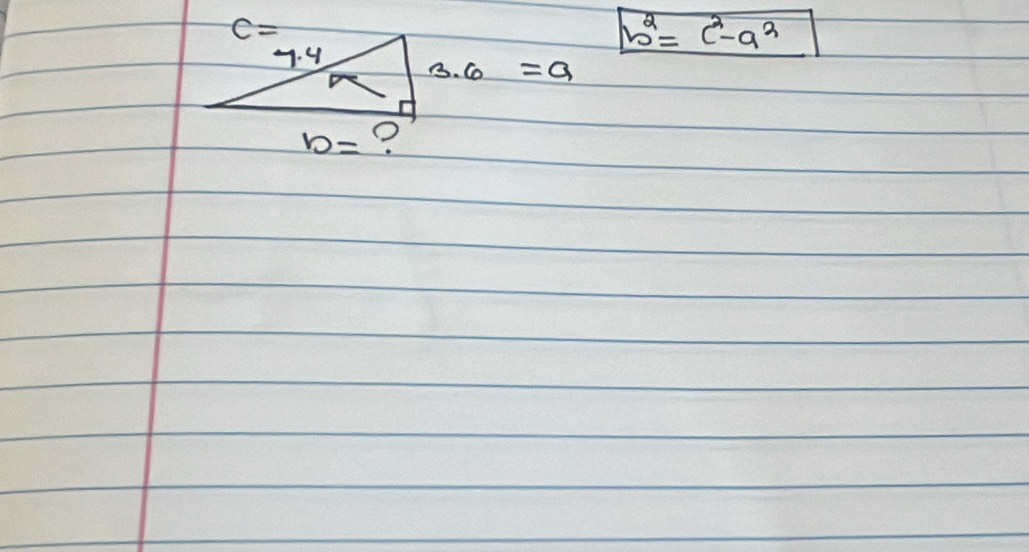 c=
7.4
3.6 = a
b= ?
b² = c² - a²